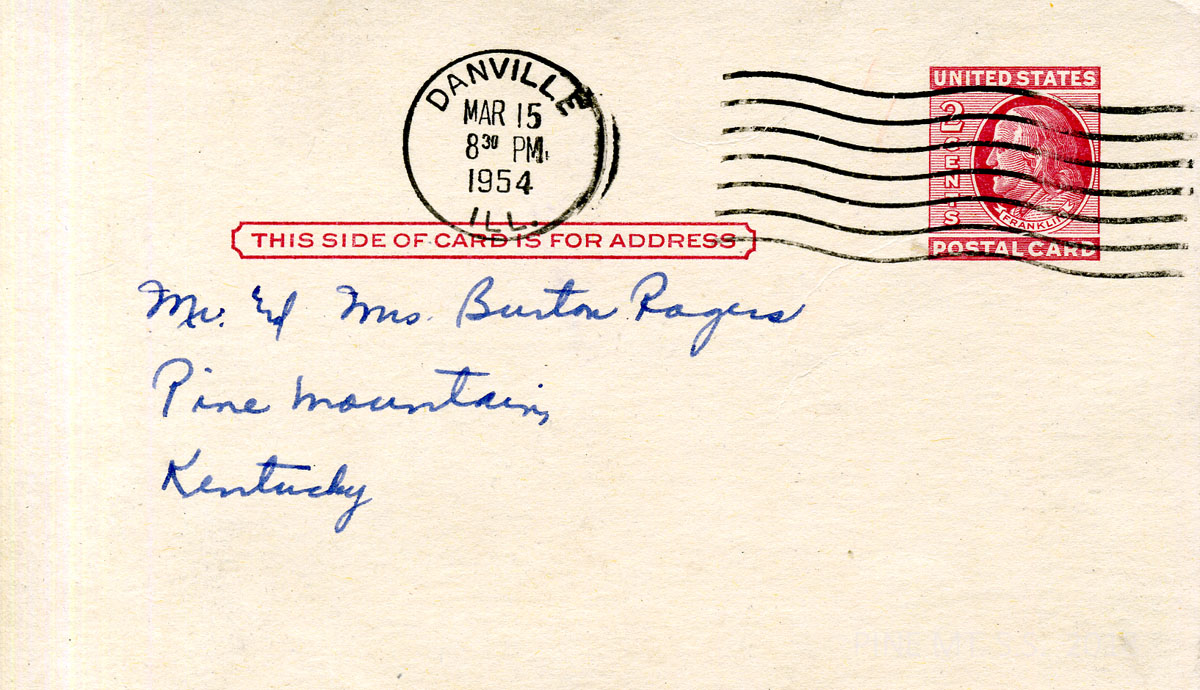 DANVILLE
MAR 15
8 30 PM
1954
ILL.
UNITED STATES
2 CENTS
FRANKLIN
POSTAL CARD
THIS SIDE OF CARD IS FOR ADDRESS
Mr. & Mrs. Burton Rogers
Pine Mountain,
Kentucky